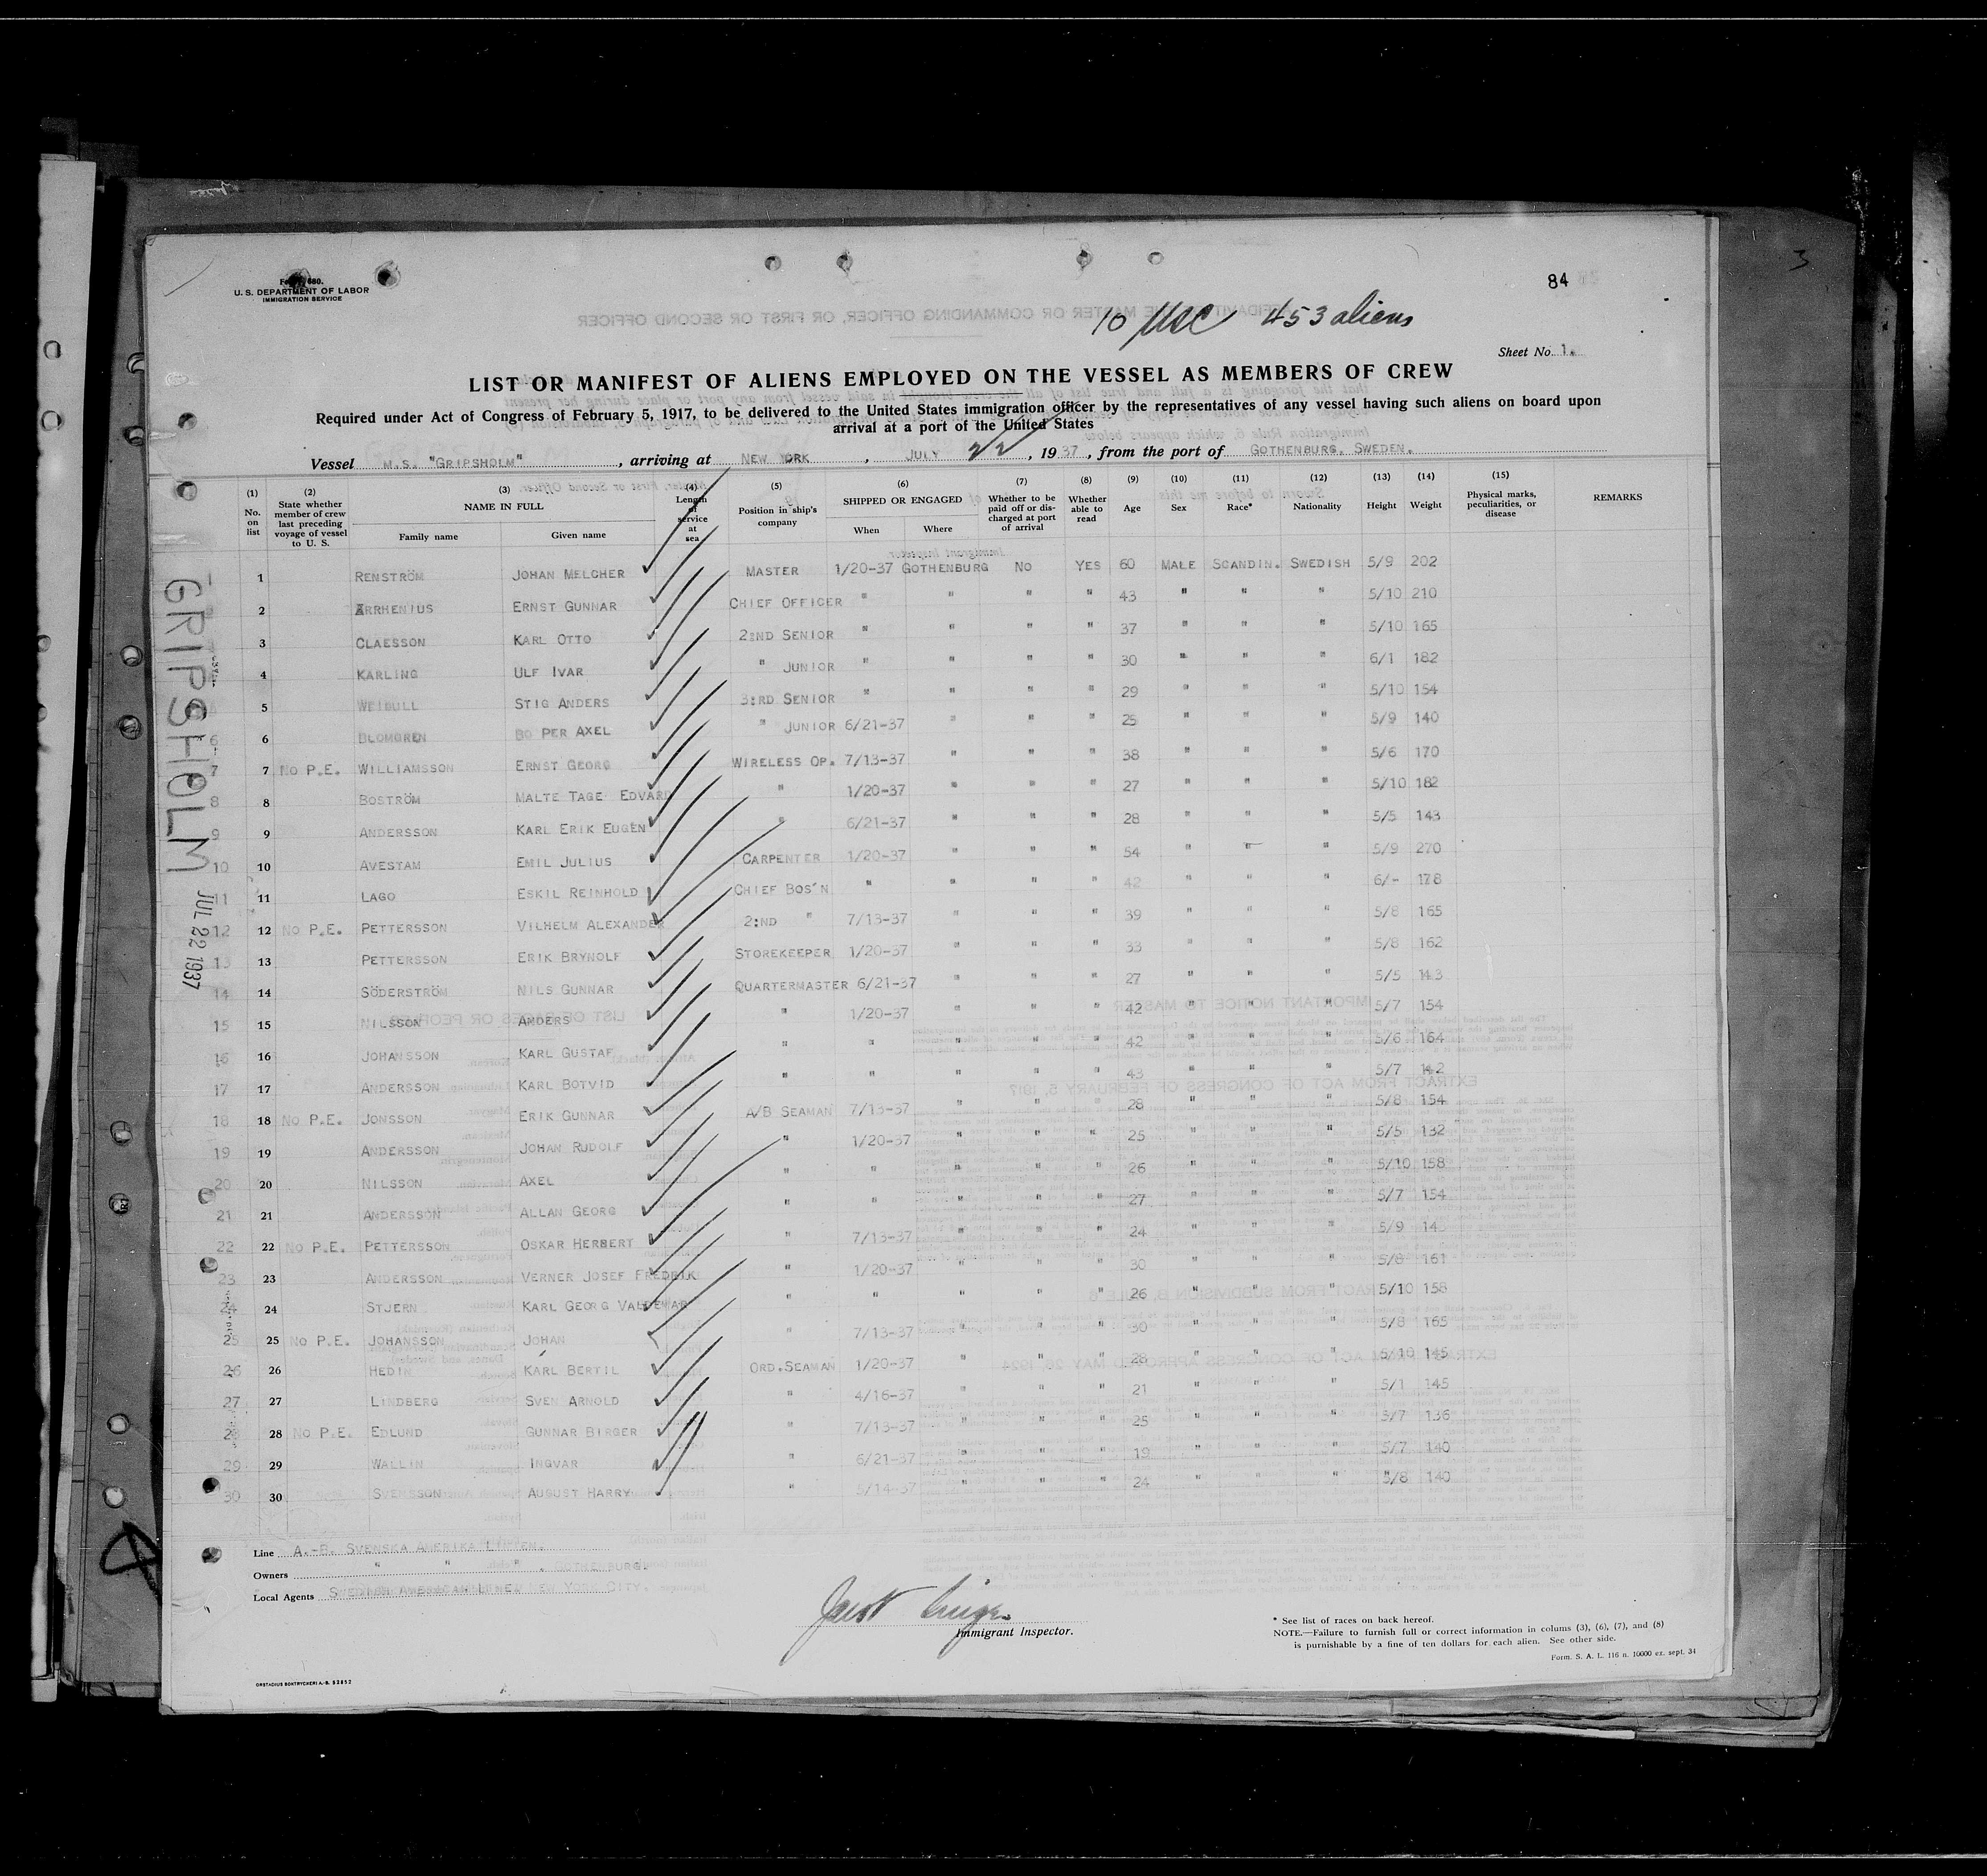 3
Form 680.
U. S. DEPARTMENT OF LABOR
IMMIGRATION SERVICE
84
10 USC 453 aliens
Sheet No. 1.
LIST OR MANIFEST OF ALIENS EMPLOYED ON THE VESSEL AS MEMBERS OF CREW
Required under Act of Congress of February 5, 1917, to be delivered to the United States immigration officer by the representatives of any vessel having such aliens on board upon
arrival at a port of the United States
Vessel M.S. "GRIPSHOLM", arriving at NEW YORK, JULY 22, 1937, from the port of GOTHENBURG, SWEDEN.
(1) No. on list (2) State whether member of crew last preceding voyage of vessel to U. S. (3) NAME IN FULL Family name Given name (4) Length of service at sea (5) Position in ship's company (6) SHIPPED OR ENGAGED When Where (7) Whether to be paid off or discharged at port of arrival (8) Whether able to read (9) Age (10) Sex (11) Race* (12) Nationality (13) Height (14) Weight (15) Physical marks, peculiarities, or disease REMARKS
1 RENSTRÖM JOHAN MELCHER MASTER 1/20-37 GOTHENBURG NO YES 60 MALE SCANDIN. SWEDISH 5/9 202
2 ARRHENIUS ERNST GUNNAR CHIEF OFFICER " " " " 43 " " " 5/10 210
3 CLAESSON KARL OTTO 2:ND SENIOR " " " " 37 " " " 5/10 165
4 KARLING ULF IVAR " JUNIOR " " " " 30 " " " 6/1 182
5 WEIBULL STIG ANDERS 3:RD SENIOR " " " " 29 " " " 5/10 154
6 BLOMGREN BO PER AXEL " JUNIOR 6/21-37 " " " 25 " " " 5/9 140
7 NO P.E. WILLIAMSSON ERNST GEORG WIRELESS OP. 7/13-37 " " " 38 " " " 5/6 170
8 BOSTRÖM MALTE TAGE EDVARD " 1/20-37 " " " 27 " " " 5/10 182
9 ANDERSSON KARL ERIK EUGEN " 6/21-37 " " " 28 " " " 5/5 143
10 AVESTAM EMIL JULIUS CARPENTER 1/20-37 " " " 54 " " " 5/9 270
11 LAGO ESKIL REINHOLD CHIEF BOS'N " " " " 42 " " " 6/- 178
12 NO P.E. PETTERSSON VILHELM ALEXANDER 2:ND " 7/13-37 " " " 39 " " " 5/8 165
13 PETTERSSON ERIK BRYNOLF STOREKEEPER 1/20-37 " " " 33 " " " 5/8 162
14 SÖDERSTRÖM NILS GUNNAR QUARTERMASTER 6/21-37 " " " 27 " " " 5/5 143
15 NILSSON ANDERS " 1/20-37 " " " 42 " " " 5/7 154
16 JOHANSSON KARL GUSTAF " " " " " 42 " " " 5/6 164
17 ANDERSSON KARL BOTVID " " " " " 43 " " " 5/7 142
18 NO P.E. JONSSON ERIK GUNNAR A/B SEAMAN 7/13-37 " " " 28 " " " 5/8 154
19 ANDERSSON JOHAN RUDOLF " 1/20-37 " " " 25 " " " 5/5 132
20 NILSSON AXEL " " " " " 26 " " " 5/10 158
21 ANDERSSON ALLAN GEORG " " " " " 27 " " " 5/7 154
22 NO P.E. PETTERSSON OSKAR HERBERT " 7/13-37 " " " 24 " " " 5/9
23 ANDERSSON VERNER JOSEF FREDRIK " 1/20-37 " " " 30 " " " 5/8 161
24 STJERN KARL GEORG VALDEMAR " " " " " 26 " " " 5/10 158
25 NO P.E. JOHANSSON JOHAN " 7/13-37 " " " 30 " " " 5/8 165
26 HEDIN KARL BERTIL ORD. SEAMAN 1/20-37 " " " 28 " " " 5/10 145
27 LINDBERG SVEN ARNOLD " 4/16-37 " " " 21 " " " 5/1 145
28 NO P.E. EDLUND GUNNAR BIRGER " 7/13-37 " " " 25 " " " 5/7 136
29 WALLIN INGVAR " 6/21-37 " " " 19 " " " 5/7 140
30 SVENSSON AUGUST HARRY " 5/14-37 " " " 24 " " " 5/8 140
GRIPSHOLM
JUL 22 1937
Line A.-B. SVENSKA AMERIKA LINIEN.
Owners " " ", GOTHENBURG.
Local Agents SWEDISH AMERICAN LINE, NEW YORK CITY.
Immigrant Inspector.
* See list of races on back hereof.
NOTE.—Failure to furnish full or correct information in colums (3), (6), (7), and (8)
is purnishable by a fine of ten dollars for each alien. See other side.
Form. S. A. L. 116 n. 10000 ex. sept. 34
ORSTADIUS BOKTRYCKERI A.-B. 32852